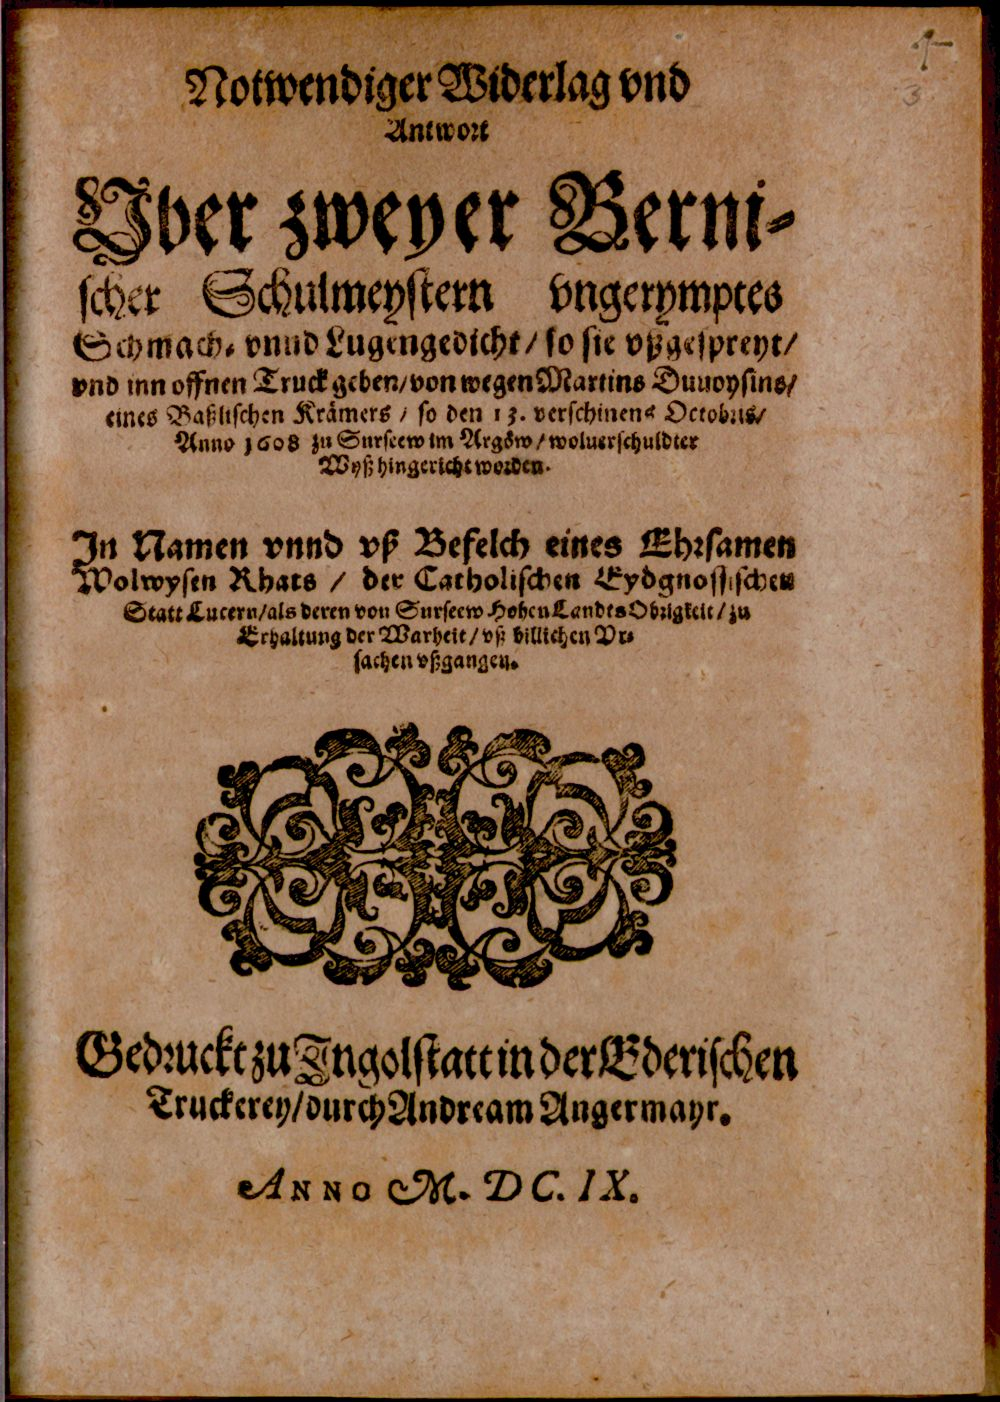 Notwendiger Widerlag vnd
Antwort
Vber zweyer Berni-
scher Schulmeystern vngerymptes
Schmach- vnnd Lugengedicht / so sie vßgespreyt /
vnd inn offnen Truck geben / von wegen Martins Duuoysins /
eines Baßlischen Krämers / so den 13. verschinens Octobris /
Anno 1608 zu Surseew im Argöw / woluerschuldter
Wyß hingericht worden.
In Namen vnnd vß Befelch eines Ehrsamen
Wolwysen Rhats / der Catholischen Eydgnossischen
Statt Lucern / als deren von Surseew Hohen Landts Obrigkeit / zu
Erhaltung der Warheit / vß billichen Vr-
sachen vßgangen.
Gedruckt zu Ingolstatt in der Ederischen
Truckerey / durch Andream Angermayr.
ANNO M. DC. IX.
3